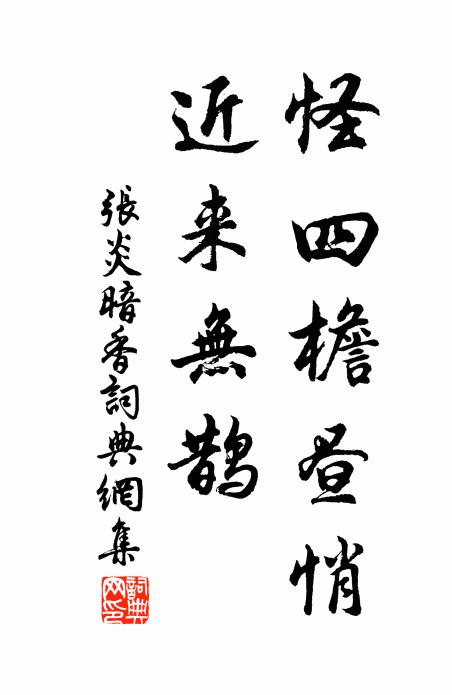 怪四檐昼悄
近来無鹊
張炎暗香詞典網集
詞典網印